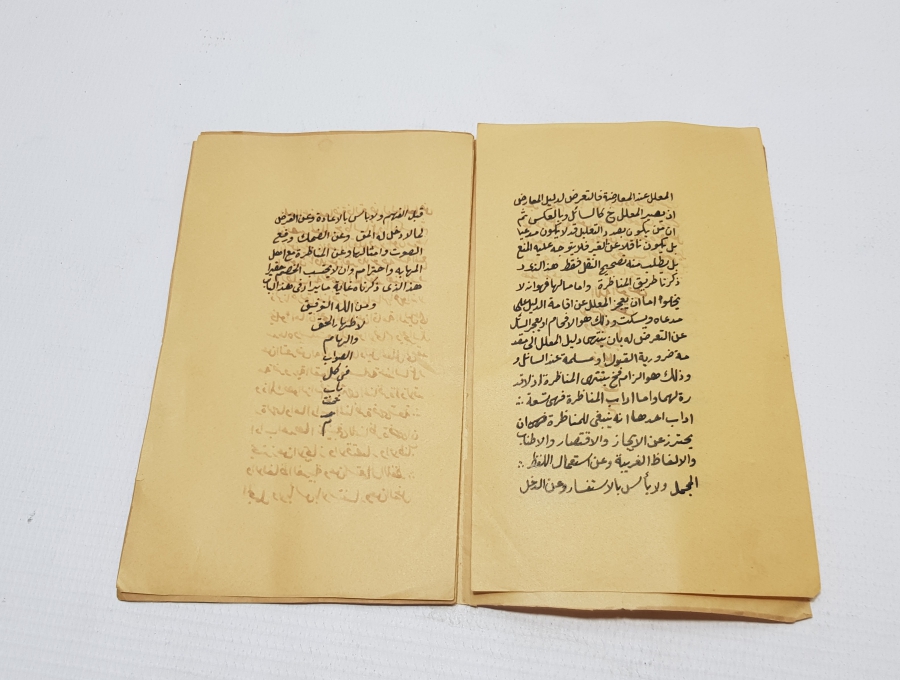 المعلل عند المعارضة فالتعرض لدليل المعارض
ان يصير المعلل ح كالسائل وبالعكس ثم
ان من يكون بصدد التعليل قد لا يكون مدعيا
بل يكون ناقلا عن الغير فلا يتوجه عليه المنع
بل يطلب منه تصحيح النقل فقط هذا الذى
ذكرنا طريق المناظرة واما مالها فهو انه لا
يخلوا اما ان يعجز المعلل عن اقامة الدليل على
مدعاه ويسكت وذلك هو الافحام او يعجز السائل
عن التعرض له بان ينتهى دليل المعلل الى مقد
مة ضرورية القبول او مسلمة عند السائل
وذلك هو الزام فح ينتهى المناظرة اذ لا قد
رة لهما واما اداب المناظرة فهى تسعة
اداب احدها انه ينبغى للمناظرة فهى ان
يحترز عن الايجاز والاقتصار والاطناب
والالفاظ الغريبة وعن استعمال اللفظ
المجمل ولا بأس بالاستفسار وعن الدخل
قبل الفهم ولا باس بالاعادة وعن القرض
لما لا دخل له المق وعن الضحك ورفع
الصوت وامثالها وعن المناظرة مع اهل
المهابه واحترام وان لا يحسب الخصم حقيرا
هذا الذى ذكرناه غاية ما يراد فى هذا الباب
ومن الله التوفيق
لاظهار الحق
والهام
الصواب
فى كل
باب
تمت
م